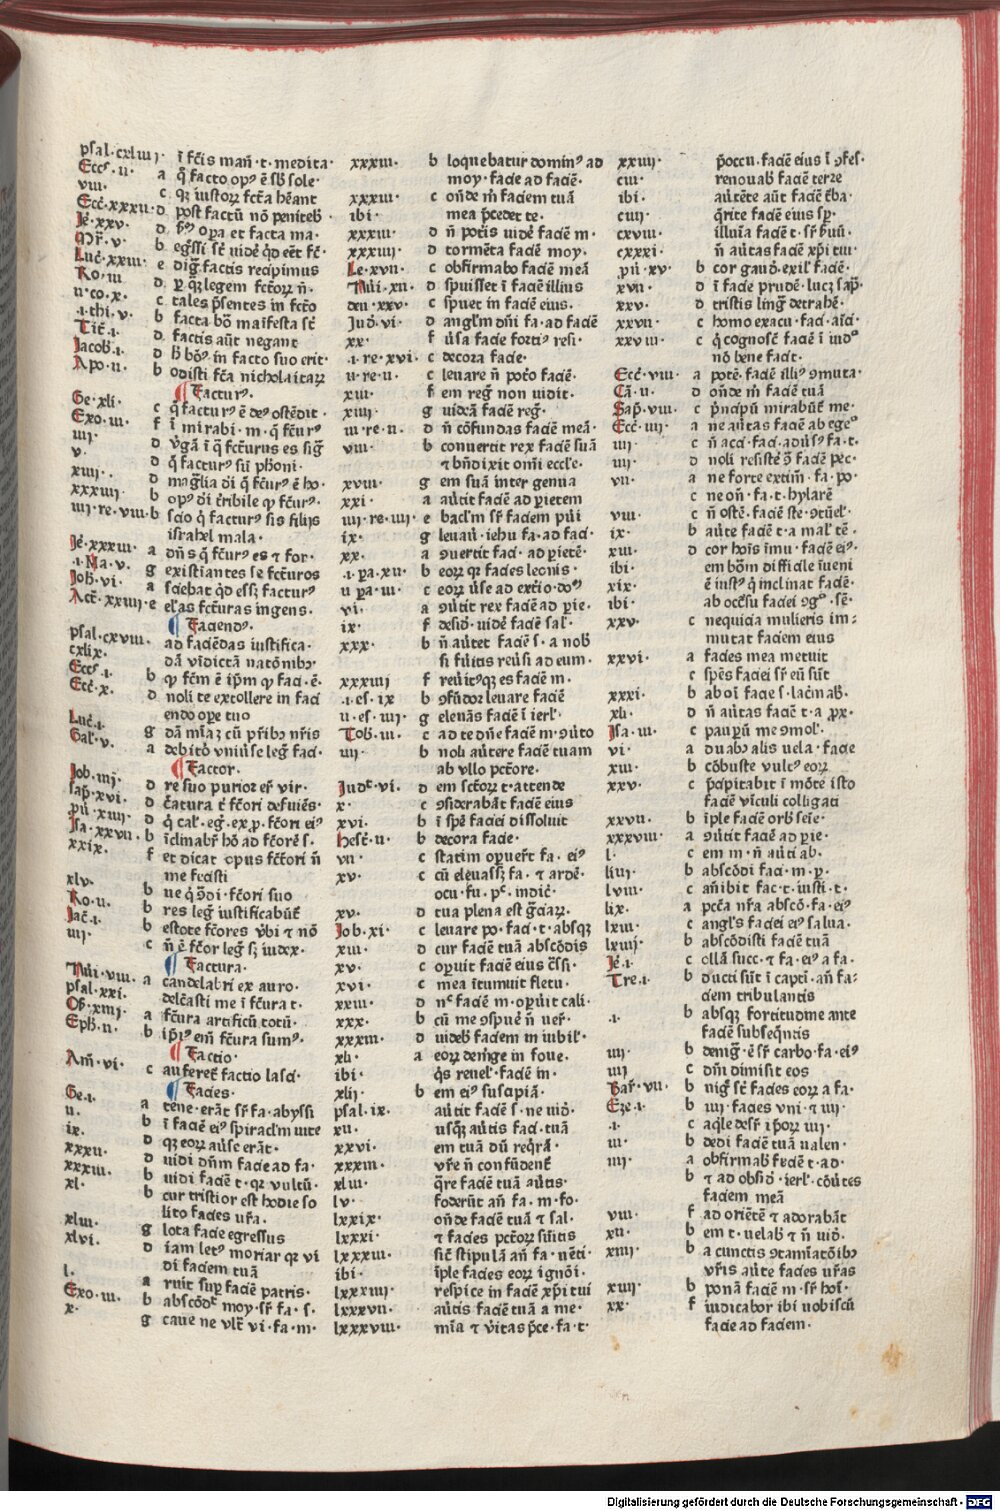 psal.cxliii. ī fc̄is man̄ · t · medita·
Eccs. ii. a q̄ facto opꝰ ē sb̄ sole·
viii. c qꝛ iustoꝝ fc̄ta hēant
Ecc̄. xxxii. d post factū nō penitebꝭ
Je. xxv. d opa et facta ma·
Mr̄. v. b egssi sc̄ vidē qd̄ eēt fc̄·
Luc̄. xxiii. e dig factis recipimus
Ro. iii. d ꝑ qꝫ legem fctoꝝ n̄·
ii. co. x. c tales p̄sentes in fc̄to
.i. thi. v. b facta bō maīfesta sc̄
Tit̄. i. d factis aūt negant
Jacob. i. d hꝭ bōꝰ in facto suo erit·
Apo. ii. b odisti fc̄a nicholaitaꝝ
¶ Facturꝰ·
Ge. xli. c q̄ facturꝰ ē deꝰ ostēdit·
Exo. iii. f ī mirabi · m · q̄ fc̄urꝰ
iiii. d vga ī q̄ fc̄turus es sig
v. d q̄ facturꝰ sū pboni·
xiiii. d magl̄ia dī q̄ fc̄urꝰ ē ho·
xxxiiii. b opꝰ dī tribile qꝫ fc̄urꝰ·
iiii. re. viii. b scio q̄ facturꝰ sis filiis
israhel mala·
Je. xxxiii. a dn̄s q̄ fc̄urꝰ es ⁊ for·
.i. Ma. v. g existiantes se fc̄turos
Joh. vi. a sciebat qd̄ essꝫ facturꝰ
Act̄. xxviii. e elas fc̄turas ingens·
¶ Faciendꝰ·
psal. cxviii. ad faciēdas iustifica·
cxlix. dā vidictā natōnibꝰ
Eccs. i. b qꝫ fc̄m ē ip̄m qꝫ faci · ē·
Ecc̄. x. d noli te extollere in faci
endo ope tuo
Luc̄. i. g dā mīaꝫ cū pr̄ibꝫ nr̄is
Gal. v. a debitō vniūse leg faci·
¶ Factor·
Job. iiii. d re suo purior er̄ vir·
Sap. xvi. d c̄atura t̄ fc̄ori deſuiēs·
pu. xiiii. d q̄ cal · eg · ex p · fc̄ori eiꝰ
Jsa. xxvii. b īclinabr̄ hō ad fc̄orē s·
xxix. f et dicat opus fc̄tori n̄
me fecisti
xlv. b ue q̄ ꝯdī · fc̄ori suo
Ro. ii. b res leg iustificabūt̄
Jac̄. i. b estote fc̄ores vbi ⁊ nō
iiii. c n̄ ē fc̄or leg sꝫ iudex·
¶ Factura·
Nūi. viii. a candelabri ex auro·
psal. xxi. delc̄asti me ī fc̄ura t·
Os. xiiii. a fc̄ura artificū totū·
Eph. ii. b ip̄iꝰ em̄ fc̄ura sumꝰ·
¶ Factio·
Am̄. vi. c auferet̄ factio lasci·
¶ Facies·
Ge. i. a tene · erāt sr̄ fa · abyssi
ii. b ī faciē eiꝰ spiraclm uite
ix. d qꝫ eoꝝ aūse erāt·
xxxii. d uidi dn̄m facie ad fa·
xxxiii. b uidi faciē t · qꝫ vultū·
xl. b cur tristior est hodie so
lito facies ura·
xliii. g lota facie egressus
xlvi. d iam letꝰ moriar qꝫ vi
di faciem tuā
l. a ruit sup faciē patris·
Exo. iii. b abscōdᵗ moy · sr̄ fa · s·
x. g caue ne vlt̄ vi · fa · m·
xxxiii. b loquebatur dominꝰ ad
moy · facie ad faciē·
xxxiii. c ondē m̄ faciem tuā
ibi. mea p̄cedet te·
xxxiii. d n̄ potis uidē faciē m·
xxxiiii. d tormēta faciē moy·
Le. xvii. c obfirmabo faciē meā
Nūi. xii. d spuisset ī faciē illius
deu. xxv. c spuet in faciē eius·
Jud. vi. d anglm dn̄i fa · ad faciē
xx. f ūsa facie fortiꝰ resi·
.i. re. xvi. c decora facie·
ii. re. ii. c leuare n̄ potō faciē·
xiii. f em reg non uidit·
xiiii. g uideā faciē reg·
iii. re. ii. d n̄ cōfundas faciē meā·
viii. b conuertit rex faciē suā
⁊ bn̄dixit om̄i eccl̄e·
xviii. g em suā inter genua
xxi. a aūtit faciē ad pietem
iiii. re. iiii. e baclm sr̄ faciem pūi
ix. g leuaū · iehu fa · ad faci·
xx. a ꝯuertit faci · ad pietē·
.i. pa. xii. b eoꝝ qꝫ facies leonis·
ii pa. iii. c eoꝝ ūse ad extīo · doꝰ
vi. a ꝯūtit rex faciē ad pie·
ix. f desid · uidē faciē sal·
xxx. b n̄ aūtet faciē s · a nob
si fūitis reūsi ad eum·
xxxiiii f reūitꝰqꝫ es faciē m·
.i. es. ix b ꝯfūdor leuare faciē
ii. es. iiii. g elenās faciē ī ierl·
Tob. iii. c ad te dn̄e faciē m · ꝯūto
iiii. b noli aūtere faciē tuam
ab vllo pctore·
Judt. vi. d em sctoꝝ t · attende
x. c ꝯsiderabāt faciē eius
xvi. b ī spē faciei dissoluit
Hest̄. ii. b decora facie·
vii. c statim opuert̄ fa · eiꝰ
xv. c cū eleuassꝫ fa · ⁊ ardē·
ocu · fu · pc̄ · indic̄·
xv. d tua plena est gciaꝝ·
Job. xi. c leuare po · faci · t · absqꝫ
xiii. d cur faciē tuā abscōdis
xv. c opuit faciē eius c̄ssi·
xvi. c mea ītumuit fletu·
xxiii. d nᶜ faciē m · opuit cali·
xxx. b cū me ꝯspuē n̄ uer̄·
xxxiii. d uideb faciem in iubil·
xli. a eoꝝ demge in foue·
ibi. qs reuel · faciē in·
xlii. b em eiꝰ suscipiā·
psal. ix. aūtit faciē s · ne uid·
xii. usqꝫ aūtis faci · tuā
xxvi. em tuā dū reqrā·
xxxiii. vr̄e n̄ confūdent̄
xliii. qre faciē tuā aūtis·
lv. foderūt an̄ fa · m · fo·
lxxix. ondē faciē tuā ⁊ sal·
lxxxi. ⁊ facies pctoꝝ sūitis
lxxxiii. sic̄ stipulā an̄ fa · uēti·
ibi. īple facies eoꝝ ignōi·
lxxxiii. respice in faciē xp̄i tui
lxxxvii. aūtis faciē tuā a me·
lxxxviii. mīa ⁊ vitas p̄ce · fa · t·
xxiiii. p̄occu · faciē eius ī ꝯfes·
ciii. renouab faciē terre
ibi. aūtēte aūt faciē t̄ba·
ciiii. qrite faciē eius sp·
cxviii. illuīa faciē t · sr̄ suū·
cxxxi. n̄ aūtas faciē xp̄i tui·
pu. xv. b cor gaud · exil faciē·
xvii. d ī facie prudē · lucꝫ sap·
xxv. d tristis ling detrahē·
xxvii. c homo exacu · faci · aīci·
xxviii. c q̄ cognosc̄ faciē ī iudᵒ
nō bene facit·
Ecc̄. viii. a potē · faciē illiꝰ ꝯmuta·
Cā. ii. d ondē m̄ faciē tuā
Sap. viii. c p̄ncipū mirabūt̄ me·
Ecc̄. iiii. a ne aūtas faciē ab egeᵒ
iiii. c n̄ acci · faci · adūsꝰ fa · t·
iiii. d noli resistē ꝯ faciē pēc·
vii. a ne forte extim̄ · fa · po·
c ne on̄ · fa · t · hylarē
viii. c n̄ ostē · faciē ste · ꝯtuel·
ix. b aūte faciē t · a mul tē·
xiii. d cor hoīs īmu · faciē eiꝰ·
ibi. em bōm difficile īueni
xix. ē iustꝰ q̄ inclinat faciē·
ibi. ab occsu faciei ꝯgᵒ · sē·
xxv. c nequicia mulieris im=
mutat faciem eius
xxvi. a facies mea metuit
c spēs faciei sr̄ eū sūt
xxxi. b aboī facie s · lacimab·
xli. d n̄ aūtas faciē t · a px·
Jsa. iii. c paupū me ꝯmol·
vi. a duabꝫ alis uela · facie
xiii. b cōbuste vultꝰ eoꝝ
xxv. c p̄cipitabit ī mōte isto
faciē vīculi colligati
xxvii. b īple faciē orb seīe·
xxxviii. a ꝯūtit faciē ad pie·
l. c em m · n̄ aūti ab·
liiii. b abscōdi faci · m · p·
lviii. c an̄ibit faci · t · iusti · t·
lix. a pcc̄a nr̄a abscō · fa · eiꝰ
lxiii. c angls faciei eiꝰ salua·
lxiiii. b abscōdisti faciē tuā
Je. i. c ollā succ · ⁊ fa · eiꝰ a fa·
Tre. i. b ducti sūt ī capti · an̄ fa=
ciem tribulantis
.i. b absqꝫ fortitudine ante
faciē subseqntis
iiii. b denig · ē sr̄ carbo · fa · eiꝰ
iiii c dn̄i dimisit eos
Bar̄. vii. b nig sc̄ facies eoꝝ a fa·
Eze. i. b iiii · facies vni · ⁊ iiii·
.i. c aqle desr̄ ipoꝝ iiii·
iii. b dedi faciē tuā ualen·
iiii. a obfirmab faciē t · ad·
b ⁊ ad obsid · ierl · cōūtes
faciem meā
viii. f ad oriētē ⁊ adorabāt
xii. b em t · uelab ⁊ n̄ uid·
xiiii. b a cunctis ꝯtamīatōibꝫ
vr̄is aūte facies ur̄as
xiiii. b ponā faciē m · sr̄ hoī·
xx. f iudicabor ibi uobiscū
facie ad faciem·
Digitalisierung gefördert durch die Deutsche Forschungsgemeinschaft · DFG